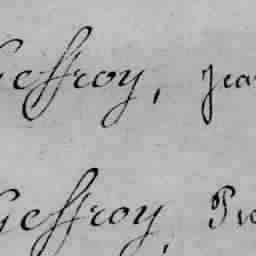 Geffroy, Jea
Geffroy, Pie